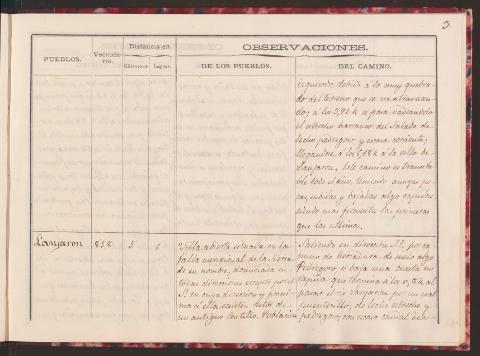 3
PUEBLOS.
Vecinda-
rio.
Distancia en
Kilómetros
Leguas.
OBSERVACIONES.
DE LOS PUEBLOS.
DEL CAMINO.
izquierdo, debido á lo muy quebra-
do del terreno que se va atravesan-
do; á los 3,92 k se pasa vadeandolo
el estrecho barranco del Salado de
lecho pedregoso y escasa corriente;
llegandose á los 5,18 k á la villa de
Lanjaron. Este camino es transita-
ble todo el año, teniendo aunque po-
cas, subidas y bajadas algo rápidas
siendo mas frecuentes las primeras
que las ultimas.
Lanjaron 858 5 1
Villa abierta situada en la
falda meridional de la Sierra
de su nombre, dominada en
todas direcciones excepto por el
S. en cuya direccion y procsi-
ma á ella existen restos de
un antiguo Castillo. Poblacion
Saliendo en direccion S.E. por ca-
mino de herradura de suelo algo
Pedregoso, se baja una cuesta
que termina á los 0,8 k al
paso el rio Lanjaron por un mal
puentecillo, de lecho estrecho y
pedregoso, con escaso caudal de a-